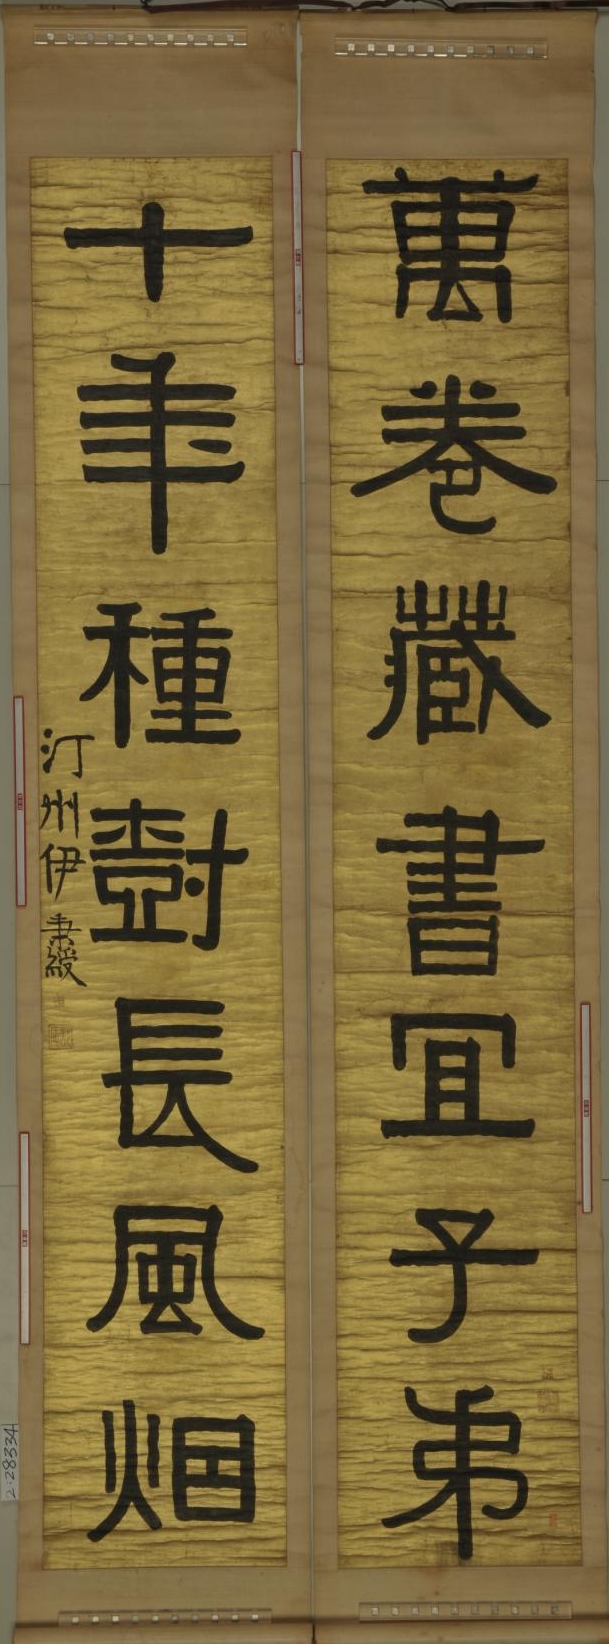 萬卷藏書宜子弟
十年種樹長風烟
汀州伊秉綬
2:28334